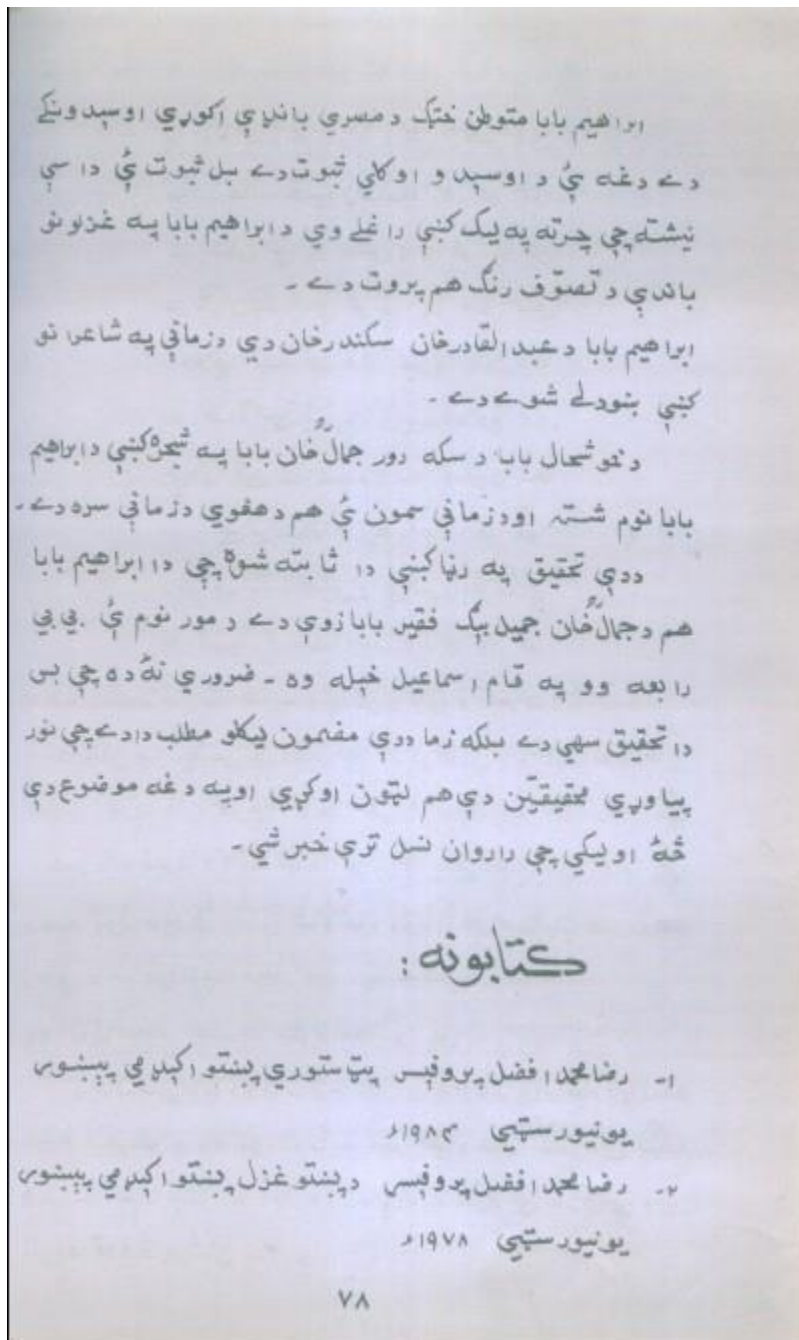 ابراهیم بابا متوطن خټک د مصري بانډې اکوړي اوسېدونکے
دے دغه ئې د اوسېدو او کلي ثبوت دے بل ثبوت ئې داسې
نیشته چې چرته په لیک کښې راغلے وي د ابراهیم بابا په غزلونو
باندې د تصوّف رنګ هم پروت دے ـ
ابراهیم بابا د عبدالقادرخان سکندرخان دې د زمانې په شاعرانو
کښې ښودلے شوے دے ـ
د خوشحال بابا د سکه رور جمال خان بابا په شجره کښې د ابراهیم
بابا نوم شته او د زمانې سمون ئې هم د هغوي د زمانې سره دے ـ
ددې تحقیق په رڼا کښې دا ثابته شوه چې دا ابراهیم بابا
هم د جمال خان جمیل بیګ فقیر بابا زوې دے د مور نوم ئې بي بي
رابعه وو په قام اسماعیل خېله وه ـ ضروري نۀ ده چې بس
دا تحقیق سهي دے بلکه زما ددې مضمون لیکلو مطلب دا دے چې نور
پیاوړي محقیقین دې هم لټون اوکړي او په دغه موضوع دې
څۀ اولیکي چې راروان نسل ترې خبر شي ـ
کتابونه :
۱ـ رضا محمد افضل پروفېسر پټ ستوري پښتو اکېډمي پېښور
یونیورسټي ۱۹۸۳ء
۲ـ رضا محمد افضل پروفېسر د پښتو غزل پښتو اکېډمي پېښور
یونیورسټي ۱۹۷۸ء
۷۸